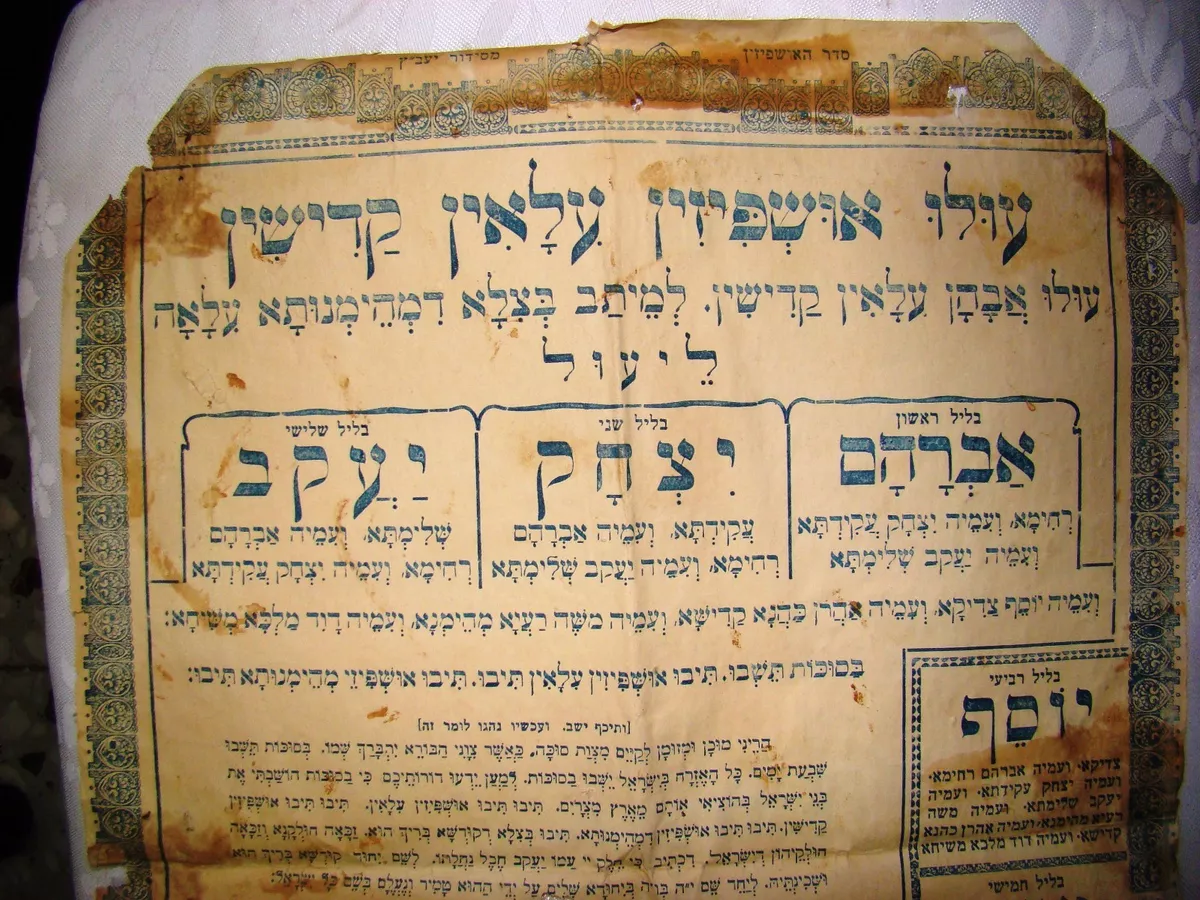 סדר האושפיזין
מסידור יעב״ץ
עוּלוּ אוּשְׁפִּיזִין עִלָאִין קַדִישִׁין
עוּלוּ אֲבָהָן עִלָאִין קַדִישִׁין. לְמֵיתַב בְּצִלָא דִמְהֵימְנוּתָא עִלָאָה
לֵיעוּל
בליל ראשון
אַבְרָהָם
רְחִימָא, וְעִמֵיהּ יִצְחָק עֲקִידְתָּא
וְעִמֵיהּ יַעֲקֹב שְׁלֵימְתָּא
בליל שני
יִצְחָק
עֲקִידְתָּא, וְעִמֵיהּ אַבְרָהָם
רְחִימָא, וְעִמֵיהּ יַעֲקֹב שְׁלֵימְתָּא
בליל שלישי
יַעֲקֹב
שְׁלֵימְתָּא, וְעִמֵיהּ אַבְרָהָם
רְחִימָא, וְעִמֵיהּ יִצְחָק עֲקִידְתָּא
וְעִמֵיהּ יוֹסֵף צַדִיקָא, וְעִמֵיהּ אַהֲרֹן כַּהֲנָא קַדִישָׁא, וְעִמֵיהּ משֶׁה רַעֲיָא מְהֵימְנָא, וְעִמֵיהּ דָוִד מַלְכָּא מְשִׁיחָא:
בְּסוּכּוֹת תֵּשְׁבוּ. תִּיבוּ אוּשְׁפִּיזִין עִלָאִין תִּיבוּ. תִּיבוּ אוּשְׁפִּיזֵי מְהֵימְנוּתָא תִּיבוּ:
[ותיכף ישב. ועכשיו נהגו לומר זה]
הֲרֵינִי מוּכָן וּמְזוּמָן לְקַיֵים מִצְוַת סוּכָּה, כַּאֲשֶׁר צִוַנִי הַבּוֹרֵא יִתְבָּרֵךְ שְׁמוֹ. בְּסוּכּוֹת תֵּשְׁבוּ
שִׁבְעַת יָמִים. כָּל הָאֶזְרָח בְּיִשְׂרָאֵל יֵשְׁבוּ בַסוּכּוֹת. לְמַעַן יֵדְעוּ דוֹרוֹתֵיכֶם כִּי בַסוּכּוֹת הוֹשַׁבְתִּי אֶת
בְּנֵי יִשְׂרָאֵל בְּהוֹצִיאִי אוֹתָם מֵאֶרֶץ מִצְרָיִם. תִּיבוּ תִּיבוּ אוּשְׁפִּיזִין עִלָאִין. תִּיבוּ תִּיבוּ אוּשְׁפִּיזִין
קַדִישִׁין. תִּיבוּ תִּיבוּ אוּשְׁפִּיזִין דִמְהֵימְנוּתָא. תִּיבוּ בְּצִלָא דְקוּדְשָׁא בְּרִיךְ הוּא. זַכָּאָה חוּלָקָנָא וְזַכָּאָה
חוּלְקֵיהוֹן דְיִשְׂרָאֵל. דִכְתִיב כִּי חֵלֶק יי עַמוֹ יַעֲקֹב חֶבֶל נַחֲלָתוֹ. לְשֵׁם יִחוּד קוּדְשָׁא בְּרִיךְ הוּא
וּשְׁכִינְתֵּיהּ. לְיַחֵד שֵׁם י״ה בְּו״ה בְּיִחוּדָא שְׁלִים עַל יְדֵי הַהוּא טָמִיר וְנֶעְלָם בְּשֵׁם כָּל יִשְׂרָאֵל:
בליל רביעי
יוֹסֵף
צדיקא. ועמיה אברהם רחימא.
ועמיה יצחק עקידתא. ועמיה
יעקב שלימתא. ועמיה משה
רעיא מהימנא. ועמיה אהרן כהנא
קדישא. ועמיה דוד מלכא משיחא
בליל חמישי